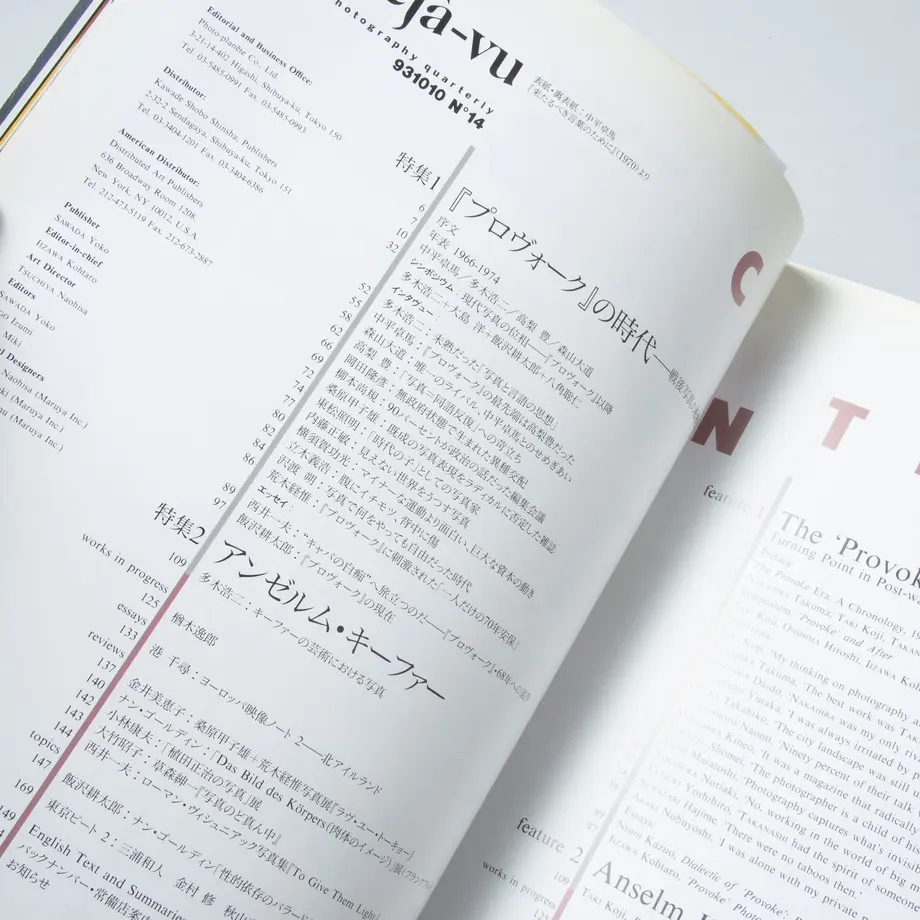 éjà-vu
hotography quarterly
931010 N°14
表紙・裏表紙：中平卓馬
『来たるべき言葉のために』(1970)より
Editorial and Business Office:
Photo-planète Co., Ltd.
3-21-14-402 Higashi, Shibuya-ku, Tokyo 150
Tel. 03-5485-0991 Fax. 03-5485-0993
Distributor:
Kawade Shobo Shinsha Publishers
2-32-2 Sendagaya, Shibuya-ku, Tokyo 151
Tel. 03-3404-1201 Fax. 03-3404-6386
American Distributor:
Distributed Art Publishers
636 Broadway Room 1208
New York, NY 10012, U.S.A.
Tel. 212-473-5119 Fax. 212-673-2887
Publisher
SAWADA Yoko
Editor-in-chief
IIZAWA Kohtaro
Art Director
TSUCHIYA Naohisa
Editors
SAWADA Yoko
Izumi
Miki
Designers
Naohisa (Maruya Inc.)
(Maruya Inc.)
(Maruya Inc.)
特集1
『プロヴォーク』の時代——戦後写真の
6 序文
7 年表 1966-1974
10 中平卓馬／多木浩二／高梨 豊／森山大道
32 シンポジウム 現代写真の位相——『プロヴォーク』以降
多木浩二＋大島 洋＋飯沢耕太郎＋八角聡仁
インタヴュー
52 多木浩二：未熟だった「写真と言語の思想」
55 中平卓馬：『プロヴォーク』の最先端は高梨豊だった
58 森山大道：唯一のライバル、中平卓馬とのせめぎあい
62 高梨 豊：「写真＝同語反復」への苛立ち
66 岡田隆彦：無政府状態で生まれた異種交配
69 柳本尚規：90パーセントが政治の話だった編集会議
72 桑原甲子雄：既成の写真表現をラディカルに否定した雑誌
74 東松照明：「時代の子」としての写真家
77 内藤正敏：見えない世界をうつす写真
80 横須賀功光：マイナーな運動より面白い、巨大な資本の動き
82 立木義浩：腹にイチモツ、背中に傷
84 沢渡 朔：写真で何をやっても自由だった時代
86 荒木経惟：『プロヴォーク』に刺激された「一人だけの70年安保」
エッセイ
89 西井一夫：“キャバの白痴”へ旅立つのだ——『プロヴォーク』・68年への
97 飯沢耕太郎：『プロヴォーク』の現在
特集2
アンゼルム・キーファー
109 多木浩二：キーファーの芸術における写真
works in progress
125 楢木逸郎
essays
133 港 千尋：ヨーロッパ映像ノート 2——北アイルランド
reviews
137 金井美恵子：桑原甲子雄＋荒木経惟写真展『ラヴ・ユー・トーキョー』
140 ナン・ゴールディン：『Das Bild des Körpers(肉体のイメージ)』展
142 小林康夫：『植田正治の写真』展
143 大竹昭子：草森紳一『写真のど真ん中』
144 西井一夫：ローマン・ヴィシュニアック写真集『To Give Them Light』
topics
147 飯沢耕太郎：ナン・ゴールディン『性的依存のバラード
169 東京ビート 2：三浦和人 金村 修 秋山
149 English Text and Summaries
バックナンバー・常備店案内
お知らせ
C
N T
feature 1
The ‘Provok
Turning Point in Post-w
Preface
The Provoke Era: A Chronology,
NAKAHIRA Takuma, TAKI Koji,
Symposium: ‘Provoke’ and After
Koji, OSHIMA Hiroshi, IIZAWA
‘My thinking on photography
Takuma, ‘The best work was
Daido, ‘NAKAHIRA was my only
Yutaka, ‘I was always irritated by
Takahiko, ‘The city landscape was still
Naomi, ‘Ninety percent of their talk
Kineo, ‘It was a magazine that radically
Shomei, ‘The photographer is a child of his
Masatoshi, ‘Photography captures what's invis
Noriaki, ‘No, working in the world of big
Yoshihiro, TAKANASHI had the spirit of someone
Hajime, ‘There were no taboos then.’
ARAKI Nobuyoshi, ‘I was alone with my private
Essays:
NISHII Kazuo, Dialectic of ‘Provoke’:
IIZAWA Kohtaro, ‘Provoke’
feature 2
89
97
Anselm
109
TAKI Koji,
works in progress
125